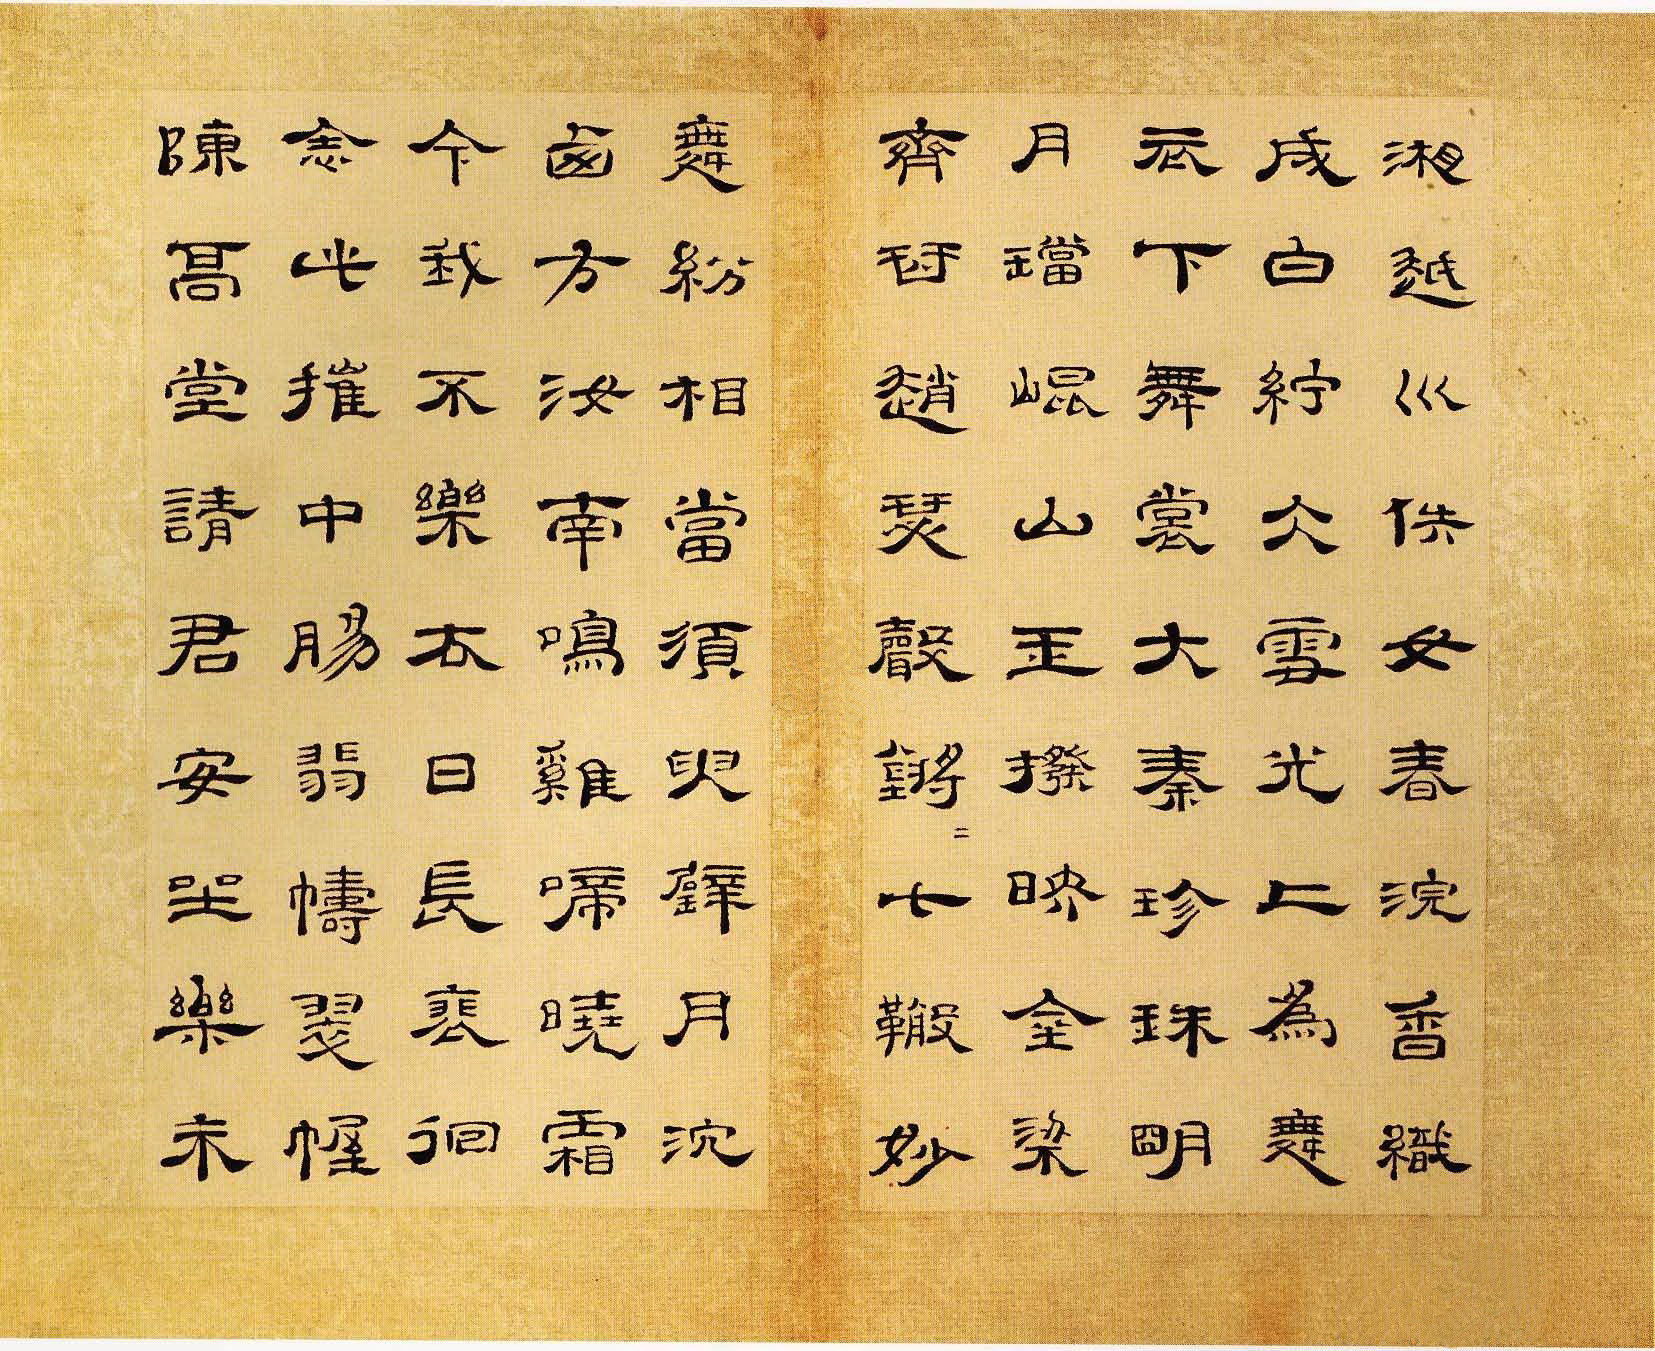 湘越巛佚女春浣香織
成白紵仌雪光上為舞
衣下舞裳大秦珍珠明
月璫崐山玉撥映金梁
齊竽趙瑟聲鏘二七鞶妙
舞紛相當須臾璧月沈
西方汝南鳴雞啼曉霜
今我不樂去日長裴徊
念此摧中腸翡幬翠幄
陳高堂請君安坐樂未